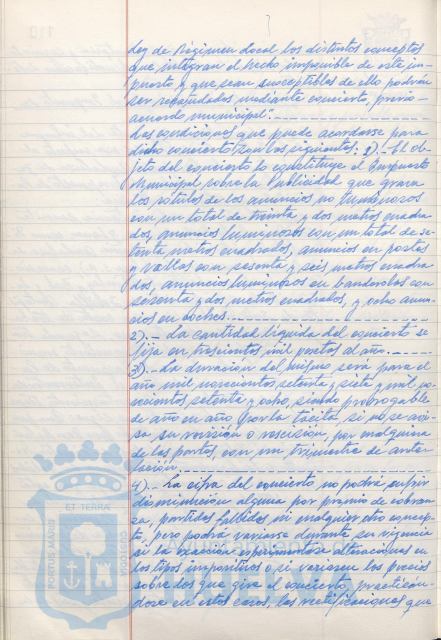 Ley de Régimen Local los distintos conceptos
que integran el hecho imponible de este im-
puesto y que sean susceptibles de ello podrán
ser recaudados mediante concierto, previo
acuerdo municipal".
Las condiciones que puede acordarse para
dicho concierto son las siguientes: 1).- El ob-
jeto del concierto lo constituye el Impuesto
Municipal sobre la Publicidad que grava
los rótulos de los anuncios no luminosos
con un total de treinta y dos metros cuadra-
dos, anuncios luminosos con un total de se-
tenta metros cuadrados, anuncios en postes
y vallas con sesenta y seis metros cuadra-
dos, anuncios luminosos en banderolas con
sesenta y dos metros cuadrados, y ocho anun-
cios en coches.
2).- La cantidad líquida del concierto se
fija en trescientas mil pesetas al año.
3).- La duración del mismo será para el
año mil novecientos setenta y siete y mil no-
vecientos setenta y ocho, siendo prorrogable
de año en año por la tácita, si no se avi-
sa su revisión o rescisión, por cualquiera
de las partes, con un trimestre de ante-
lación.
4).- La cifra del concierto no podrá sufrir
disminución alguna por premio de cobran-
za, partidas fallidas ni cualquier otro concep-
to, pero podrá variarse durante su vigencia
si la exacción experimentase alteraciones en
los tipos impositivos o si variasen los precios
sobre los que gire el concierto, practicán-
dose en estos casos, las rectificaciones que
ET TERRA
PORTUS MARIS
CUSTODIA